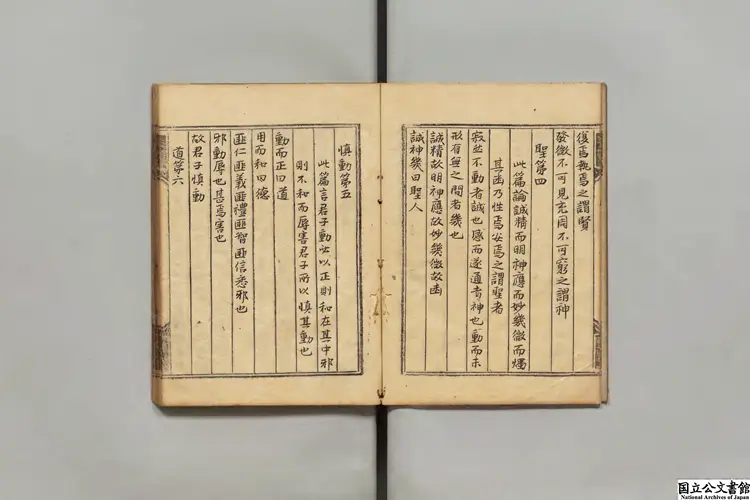 復焉執焉之謂賢
發微不可見充周不可窮之謂神
聖第四
此篇論誠精而明神應而妙幾微而幽
其函乃性焉安焉之謂聖者
寂然不動者誠也感而遂通者神也動而未
形有無之間者幾也
誠精故明神應故妙幾微故幽
誠神幾曰聖人
慎動第五
此篇言君子動必以正則和在其中邪
則不和而辱害君子所以慎其動也
動而正曰道
用而和曰德
匪仁匪義匪禮匪智匪信悉邪也
邪動辱也甚焉害也
故君子慎動
道第六
国立公文書館
National Archives of Japan